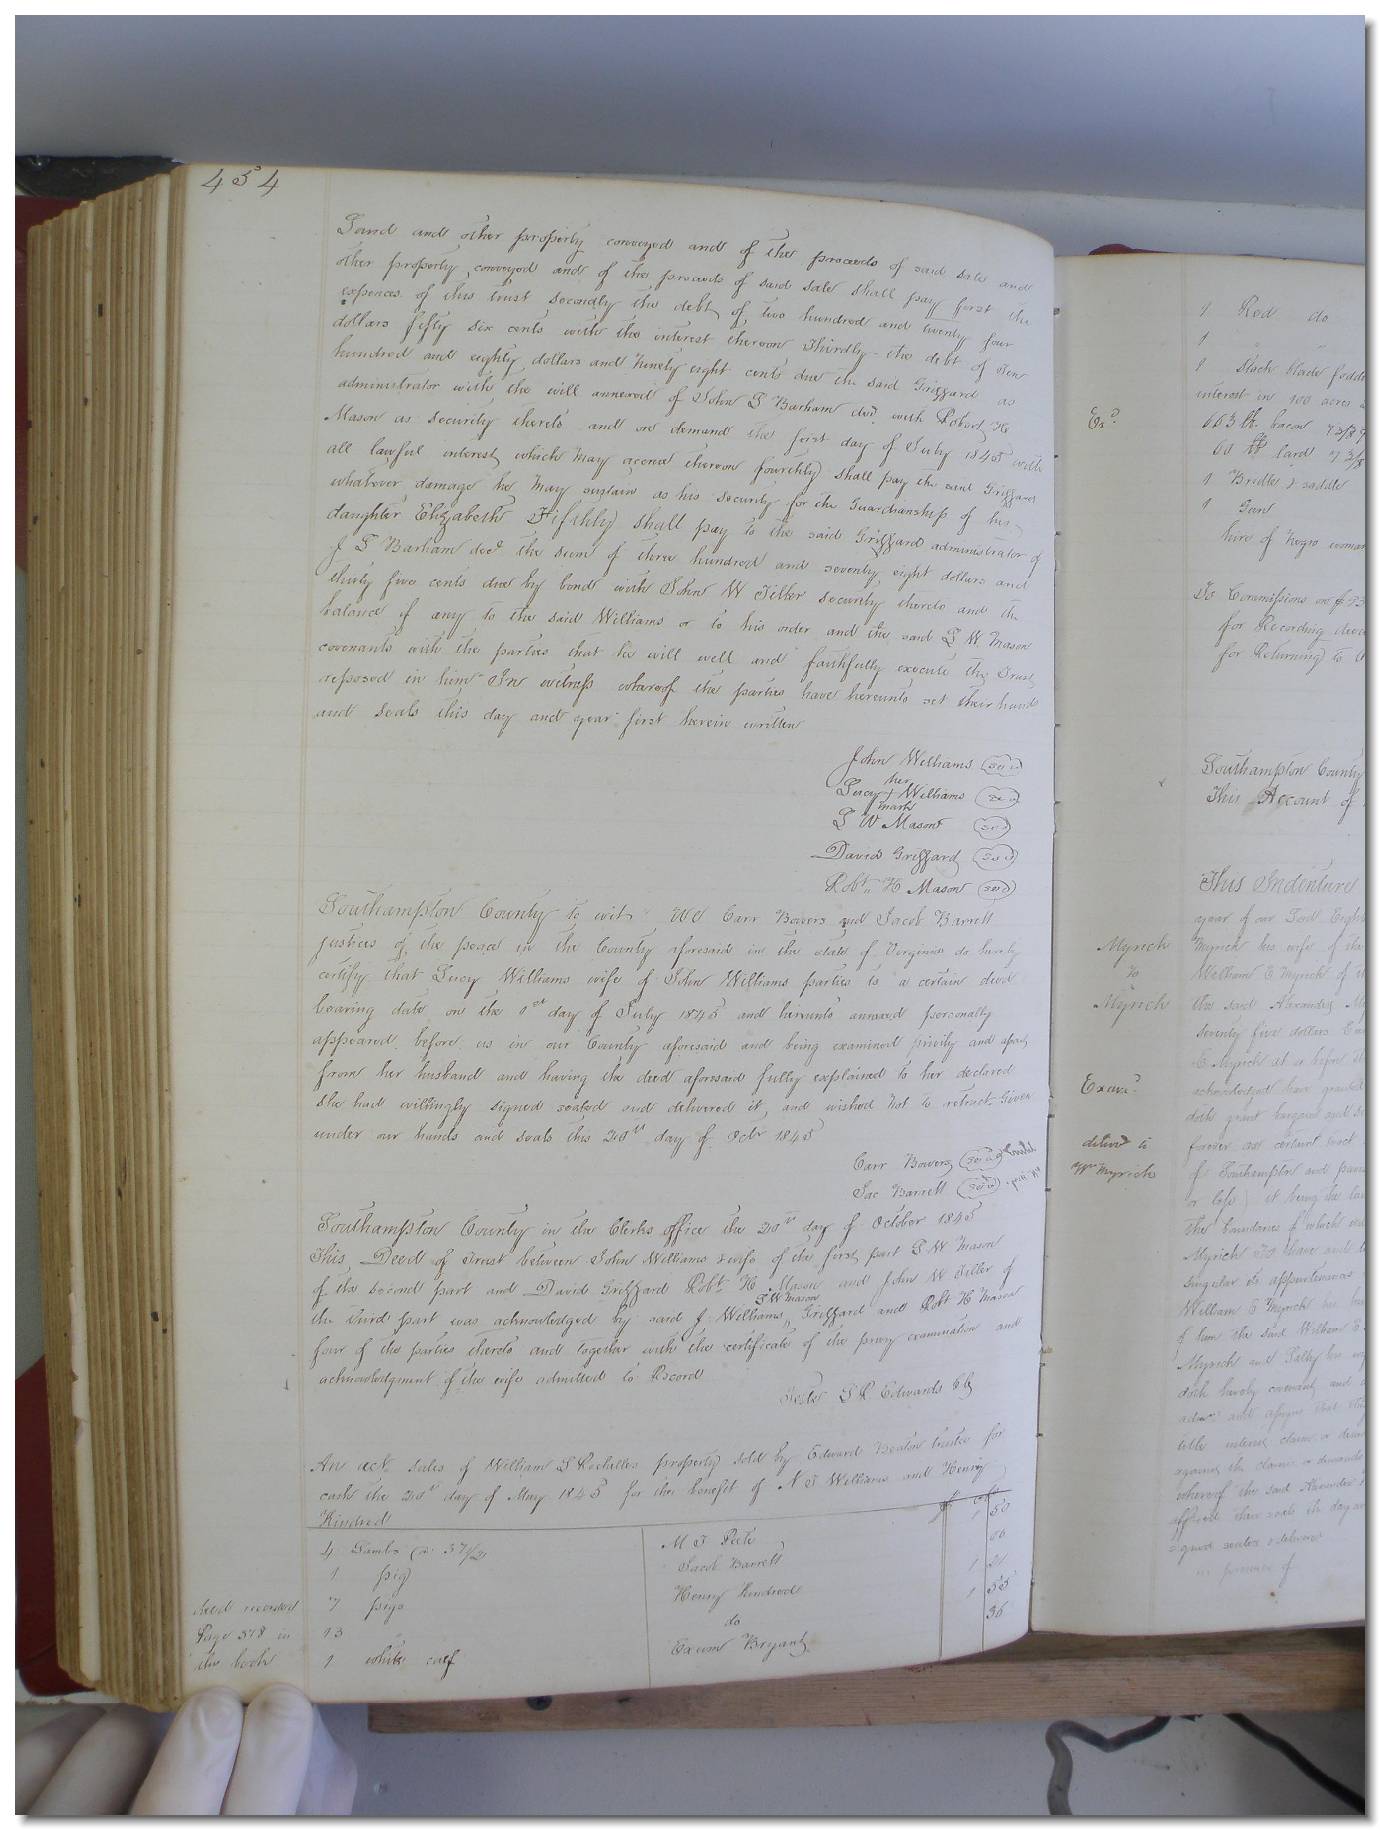 454
Land and other property conveyed and of the proceeds of said sale and
other property conveyed and of the proceeds of said sale shall pay first the
expences of this trust secondly the debt of two hundred and twenty four
dollars fifty six cents with the interest thereon Thirdly the debt of One
hundred and eighty dollars and Ninety eight cents due the said Grizzard as
administrator with the will annexed of John S Barham decd with Robert H
Mason as security thereto and on demand the first day of July 1845 with
all lawful interest which may accrue thereon fourthly shall pay the said Grizzard
whatever damage he may sustain as his security for the Guardianship of his
daughter Elizabeth Fifthly shall pay to the said Grizzard administrator of
J S Barham decd the sum of three hundred and seventy eight dollars and
thirty five cents due by bond with John W Tiller security thereto and the
balance if any to the said Williams or to his order and the said L W Mason
covenants with the parties that he will well and faithfully execute the Trust
reposed in him In witness whereof the parties have hereunto set their hands
and Seals this day and year first herein written
John Williams seal
her
Lucy + Williams seal
mark
L W Mason seal
David Grizzard seal
Robt H Mason seal
Southampton County to wit We Carr Bowers and Jacob Barrett
justices of the peace in the County aforesaid in the state of Virginia do hereby
certify that Lucy Williams wife of John Williams parties to a certain deed
bearing date on the 1st day of July 1845 and hereunto annexed personally
appeared before us in our County aforesaid and being examined privily and apart
from her husband and having the deed aforesaid fully explained to her declared
she had willingly signed sealed and delivered it and wished not to retract Given
under our hands and seals this 20th day of Octr 1845
Carr Bowers seal
Jac Barrett seal
Southampton County in the Clerks office the 20th day of October 1845
This Deed of Trust between John Williams & wife of the first part L W Mason
of the second part and David Grizzard Robt H Mason and John W Tiller of
L W Mason
the third part was acknowledged by said J Williams Grizzard and Robt H Mason
four of the parties thereto and together with the certificate of the privy examination and
acknowledgment of the wife admitted to Record
Teste L R Edwards Clk
An acct sales of William S Rochelles property sold by Edward Beaton trustee for
cash the 20th day of May 1845 for the benefit of N T Williams and Henry
Kindred
4 Lambs @ 37 1/2 M T Pete 1 50
1 pig Jacob Barrett 06
7 pigs Henry Kindred 1 21
13 do 1 55
1 white calf Exum Bryant 36
Deed recorded
Page 378 in
this book
1 Red do
1
1 Stack blade fodder
interest in 100 acres
Exd
663 lb bacon 7 3/8
60 lb lard 7 3/8
1 Bridle & saddle
1 Gun
hire of Negro woman
To Commissions on
for Recording deed
for Returning to
Southampton County
This Account of
This Indenture
year of our Lord Eight
Myrick
to
Myrick
Myrick his wife of the
William E Myrick of
the said Alexander
seventy five dollars
E Myrick at or before
Examd
acknowledged have granted
doth grant bargain and
forever one certain tract
delivd to
Wm Myrick
of Southampton and
or less it being the
the boundaries of which
Myrick To have and
singular its appurtenances
William E Myrick his
of him the said William E
Myrick and Sally his
doth hereby covenant and
title interest claim or
against the claim or demands
whereof the said Alexander
affixed their seals the day
signed sealed & delivered
in presence of